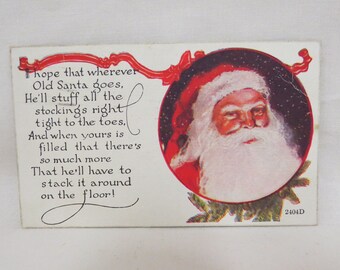 I hope that wherever
Old Santa goes,
He'll stuff all the
stockings right
tight to the toes,
And when yours is
filled that there's
so much more
That he'll have to
stack it around
on the floor!
2404D